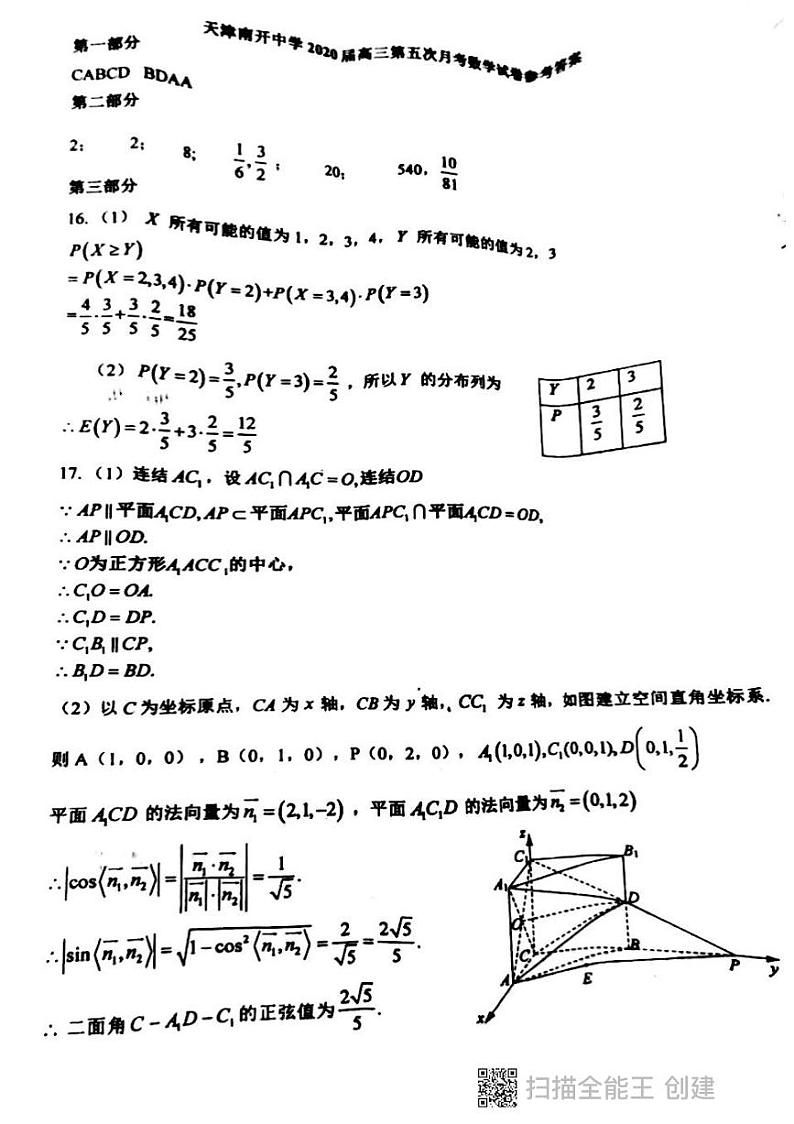 天津南开中学2020届高三第五次月考数学试卷参考答案
第一部分
CABCD BDAA
第二部分
2; 2; 8; 1/6, 3/2; 20; 540, 10/81
第三部分
16.（1） X 所有可能的值为1，2，3，4，Y 所有可能的值为2，3
P(X≥Y)
=P(X=2,3,4)·P(Y=2)+P(X=3,4)·P(Y=3)
=4/5·3/5+3/5·2/5=18/25
（2）P(Y=2)=3/5,P(Y=3)=2/5，所以Y 的分布列为
Y 2 3
P 3/5 2/5
∴E(Y)=2·3/5+3·2/5=12/5
17.（1）连结AC₁，设AC₁∩A₁C=O,连结OD
∵AP∥平面A₁CD,AP⊂平面APC₁,平面APC₁∩平面A₁CD=OD,
∴AP∥OD.
∵O为正方形A₁ACC₁的中心，
∴C₁O=OA.
∴C₁D=DP.
∵C₁B₁∥CP,
∴B₁D=BD.
（2）以C为坐标原点，CA为x轴，CB为y轴，CC₁为z轴，如图建立空间直角坐标系.
则A（1，0，0），B（0，1，0），P（0，2，0），A₁(1,0,1),C₁(0,0,1),D(0,1,1/2)
平面A₁CD的法向量为n₁=(2,1,-2)，平面A₁C₁D的法向量为n₂=(0,1,2)
∴|cos⟨n₁,n₂⟩|=|n₁·n₂/|n₁|·|n₂||=1/√5.
∴|sin⟨n₁,n₂⟩|=√(1-cos²⟨n₁,n₂⟩)=2/√5=2√5/5.
∴二面角C-A₁D-C₁的正弦值为2√5/5.
z
C₁ B₁
A₁ D
O
C B P y
A E
x
扫描全能王 创建